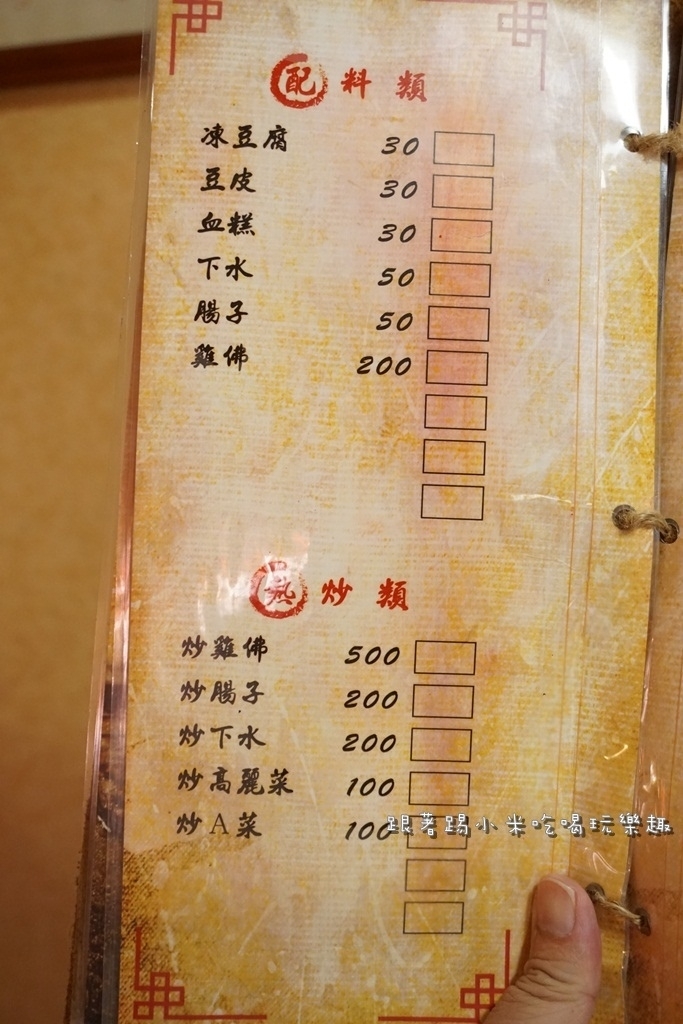 配料類
凍豆腐 30
豆皮 30
血糕 30
下水 50
腸子 50
雞佛 200
熱炒類
炒雞佛 500
炒腸子 200
炒下水 200
炒高麗菜 100
炒A菜 100
跟著踢小米吃喝玩樂趣